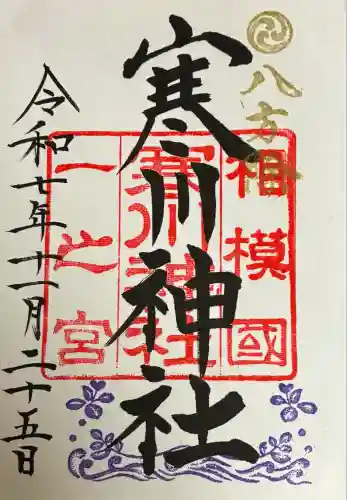 八方除
相模國
寒川神社
一之宮
寒川神社
令和七年十一月二十五日